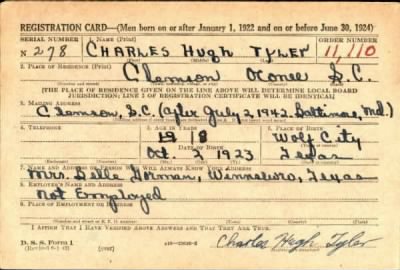 REGISTRATION CARD—(Men born on or after January 1, 1922 and on or before June 30, 1924)
SERIAL NUMBER 1. NAME (Print) ORDER NUMBER
N 278 CHARLES Hugh Tyler 11,110
(First) (Middle) (Last)
2. PLACE OF RESIDENCE (Print)
Clemson Oconee S.C.
[THE PLACE OF RESIDENCE GIVEN ON THE LINE ABOVE WILL DETERMINE LOCAL BOARD
JURISDICTION; LINE 2 OF REGISTRATION CERTIFICATE WILL BE IDENTICAL]
3. MAILING ADDRESS
Clemson, S.C. (after July 2, 1942. Baltimore, Md.)
4. TELEPHONE 5. AGE IN YEARS 6. PLACE OF BIRTH
18 Wolf City
DATE OF BIRTH
Oct. 1923 Texas
7. NAME AND ADDRESS OF PERSON WHO WILL ALWAYS KNOW YOUR ADDRESS
Mrs. Della Gorman, Winnsboro, Texas
8. EMPLOYER'S NAME AND ADDRESS
Not Employed
9. PLACE OF EMPLOYMENT OR BUSINESS
I AFFIRM THAT I HAVE VERIFIED ABOVE ANSWERS AND THAT THEY ARE TRUE.
D. S. S. Form 1
(over)
Charles Hugh Tyler